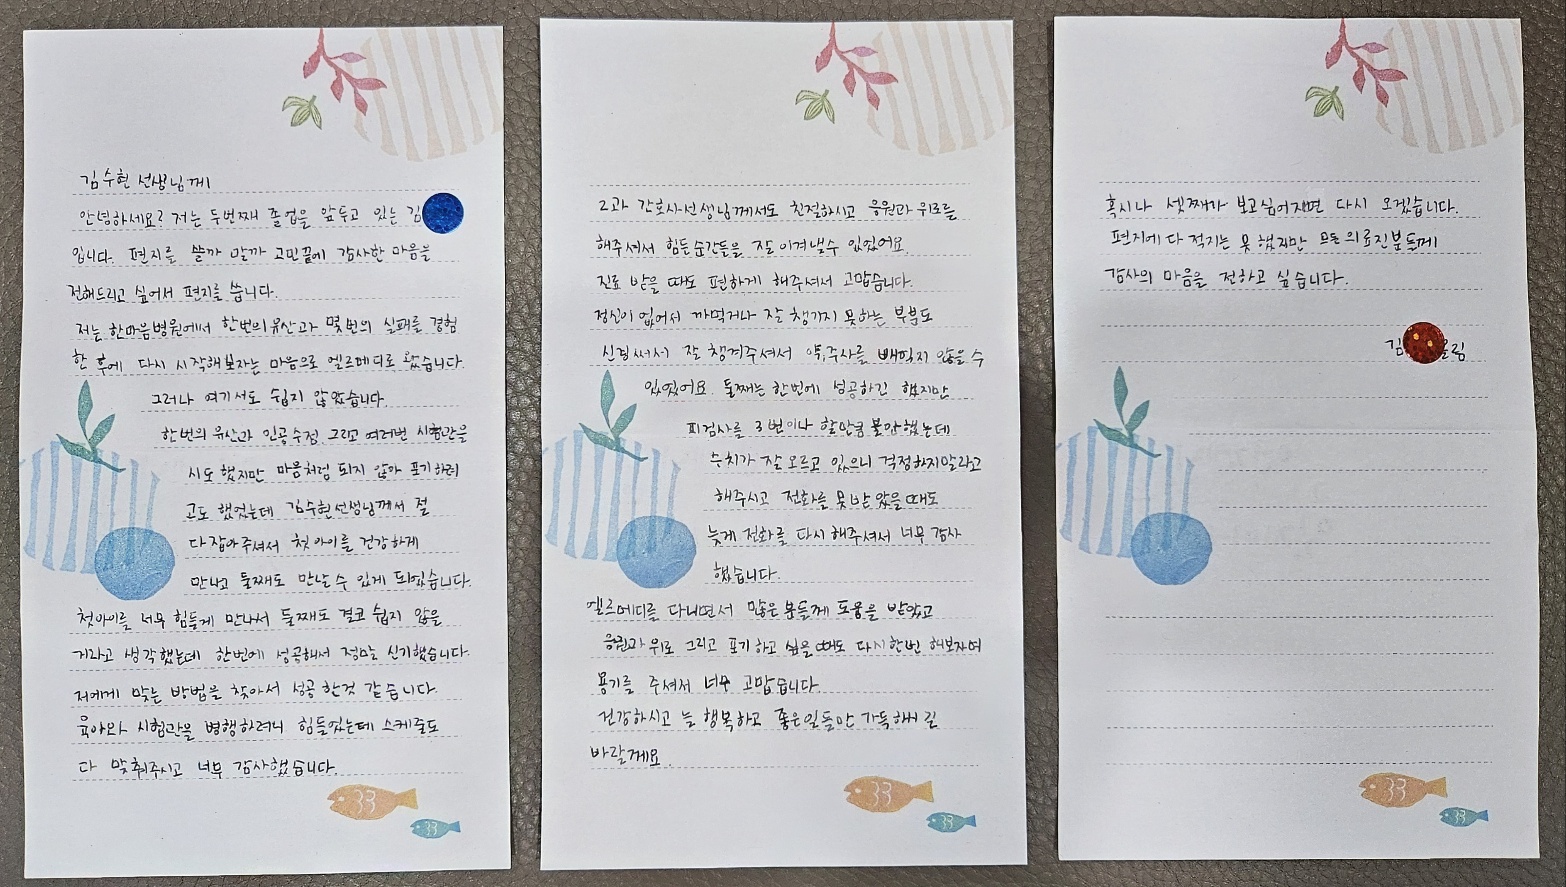 김수현 선생님께
안녕하세요? 저는 두번째 졸업을 앞두고 있는 김
입니다. 편지를 쓸까 말까 고민끝에 감사한 마음을
전해드리고 싶어서 편지를 씁니다.
저는 한마음병원에서 한번의 유산과 몇번의 실패를 경험
한 후에 다시 시작해보자는 마음으로 엘르메디로 왔습니다.
그러나 여기서도 쉽지 않았습니다.
한번의 유산과 인공수정 그리고 여러번 시험관을
시도 했지만 마음처럼 되지 않아 포기하려
고도 했었는데 김수현선생님께서 절
다잡아주셔서 첫 아이를 건강하게
만나고 둘째도 만날 수 있게 되었습니다.
첫아이를 너무 힘들게 만나서 둘째도 결코 쉽지 않을
거라고 생각했는데 한번에 성공해서 정말 신기했습니다.
저에게 맞는 방법을 찾아서 성공한것 같습니다.
육아와 시험관을 병행하려니 힘들었는데 스케줄도
다 맞춰주시고 너무 감사했습니다.
2과 간호사선생님께서도 친절하시고 응원과 위로를
해주셔서 힘든순간들을 잘 이겨낼수 있었어요.
진료 받을 때도 편하게 해주셔서 고맙습니다.
정신이 없어서 까먹거나 잘 챙기지 못하는 부분도
신경써서 잘 챙겨주셔서 약,주사를 빼먹지 않을 수
있었어요. 둘째는 한번에 성공하긴 했지만
피검사를 3번이나 할만큼 불안했는데
수치가 잘 오르고 있으니 걱정하지말라고
해주시고 전화를 못 받았을때도
늦게 전화를 다시 해주셔서 너무 감사
했습니다.
엘르메디를 다니면서 많은 분들께 도움을 받았고
응원과 위로 그리고 포기하고 싶을때도 다시한번 해보자며
용기를 주셔서 너무 고맙습니다.
건강하시고 늘 행복하고 좋은일들만 가득해시 길
바랄게요.
혹시나 셋째가 보고싶어지면 다시 오겠습니다.
편지에 다 적지는 못 했지만 모든 의료진분들께
감사의 마음을 전하고 싶습니다.
김 올림